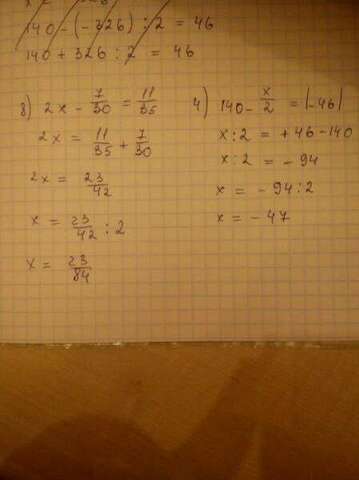 140 - (-326) : 2 = 46
140 + 326 : 2 = 46
3) 2x - 7/30 = 11/35
2x = 11/35 + 7/30
2x = 23/42
x = 23/42 : 2
x = 23/84
4) 140 - x/2 = |-46|
x : 2 = + 46 - 140
x : 2 = - 94
x = - 94 : 2
x = - 47